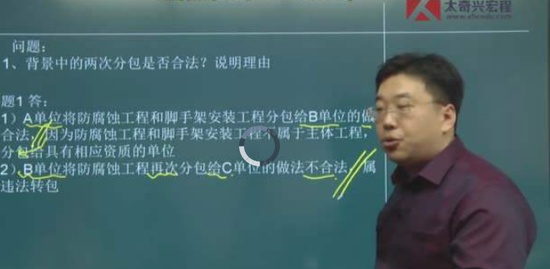 太奇兴宏程
问题：
1、背景中的两次分包是否合法？说明理由
题1答：
1）A单位将防腐蚀工程和脚手架安装工程分包给B单位的做
合法，因为防腐蚀工程和脚手架安装工程不属于主体工程，
分包给具有相应资质的单位
2）B单位将防腐蚀工程再次分包给C单位的做法不合法，属
违法转包